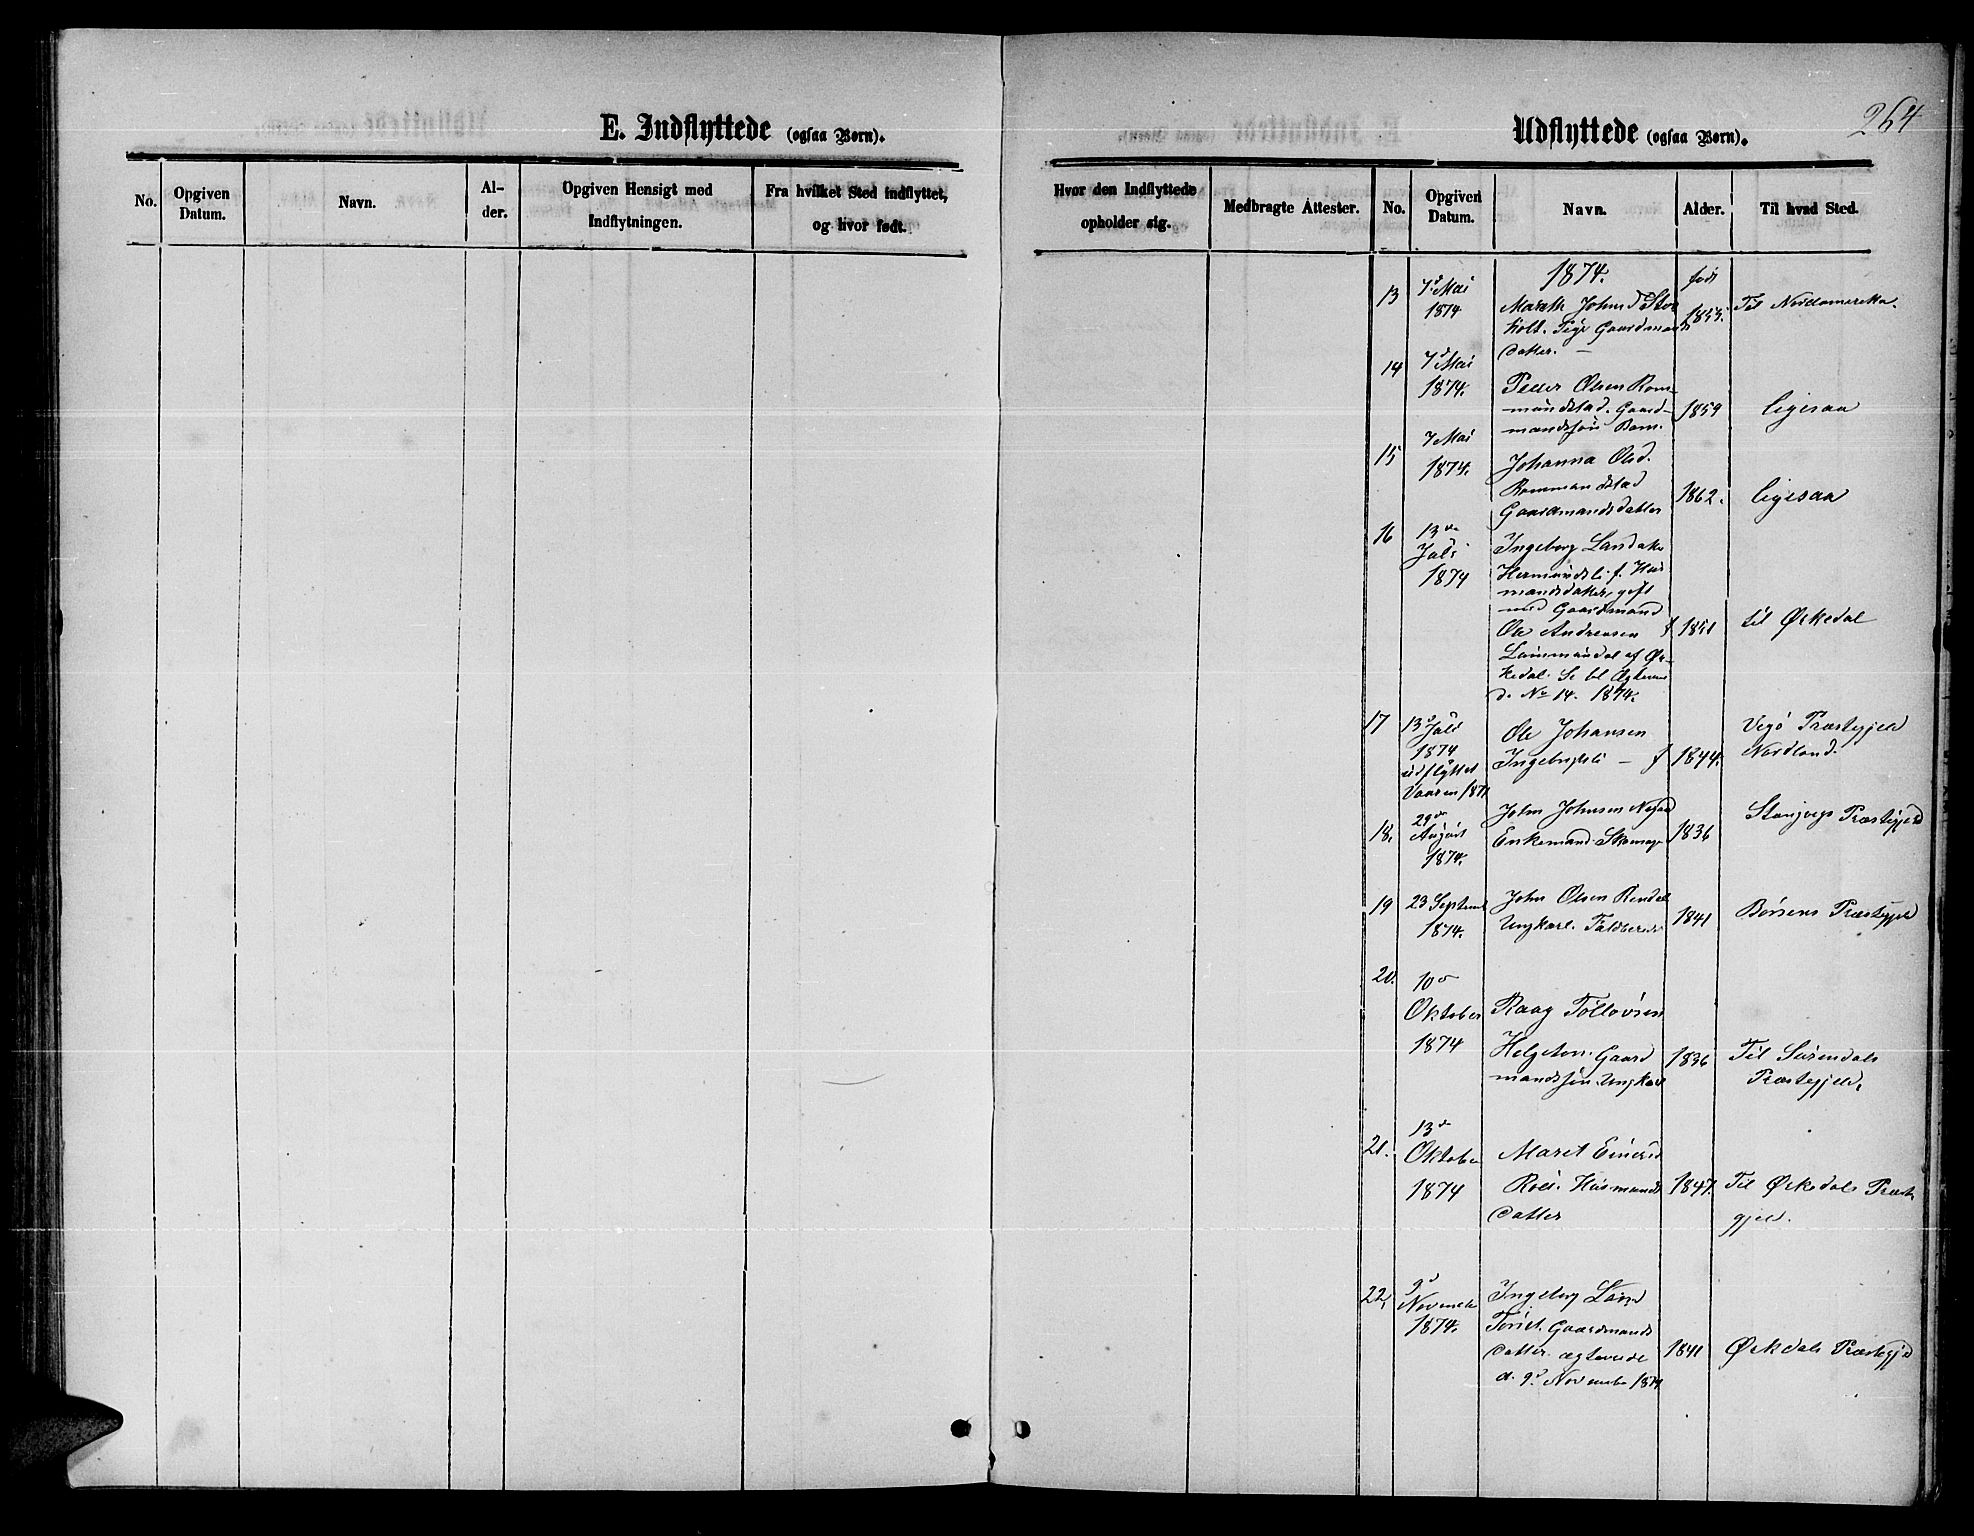 264
E. Indflyttede (ogsaa Børn).
No.
Opgiven Datum.
Navn.
Al-
der.
Opgiven Hensigt med
Indflytningen.
Fra hvilket Sted indflyttet,
og hvor født.
Udflyttede (ogsaa Børn).
Hvor den Indflyttede
opholder sig.
Medbragte Attester.
No.
Opgiven
Datum.
Navn.
Alder.
Til hvad Sted.
1874.
født
13 7d Mai 1874
Marith Johnsd
Gaardmands
datter. —
1855. Til Nordamerika.
14 7d Mai 1874.
Peder Olsen Rom-
mundstad. Gaard-
mandssøn Rom.
1859 ligesaa
15 7 Mai 1874.
Johanna Olsd.
Rommundstad
Gaardmandsdatter
1862. ligesaa
16 13de Juli 1874
Ingeborg Larsdatter
Hermundsli f. Hus
mandsdatter, gift
med Gaardmand
Ole Andreasen f 1851 til Ørkedal
af Ør-
kedal. Se bl Ægtevied
d. No 14. 1874.
17 13d Juli 1874 udflyttet Vaaren 1871
Ole Johansen
Ingebrigtsli — f 1844. Vegø Præstegjeld
Nordland.
18. 29de August 1874.
John Johnsen
Enkemand. Skomager 1836 Stangvigs Præstegjeld
19 23 Septemb 1874.
John Olsen Rendal
Ungkarl. 1841 Børsens Præstegjeld
20. 10de Oktober 1874
Raag Tollovsen
Helgeton. Gaard
mandssøn. Ungkarl
1836 Til Surendals
Præstegjeld.
21. 13de Oktober 1874
Maret Einersd
Husmands
datter
1847. Til Ørkedals Præste
gjeld.
22. 9d November 1874.
Ingeborg Larsd
Gaardmands
datter. ægteviede
d. 9d November 1874
1841 Ørkdals Præstegjeld